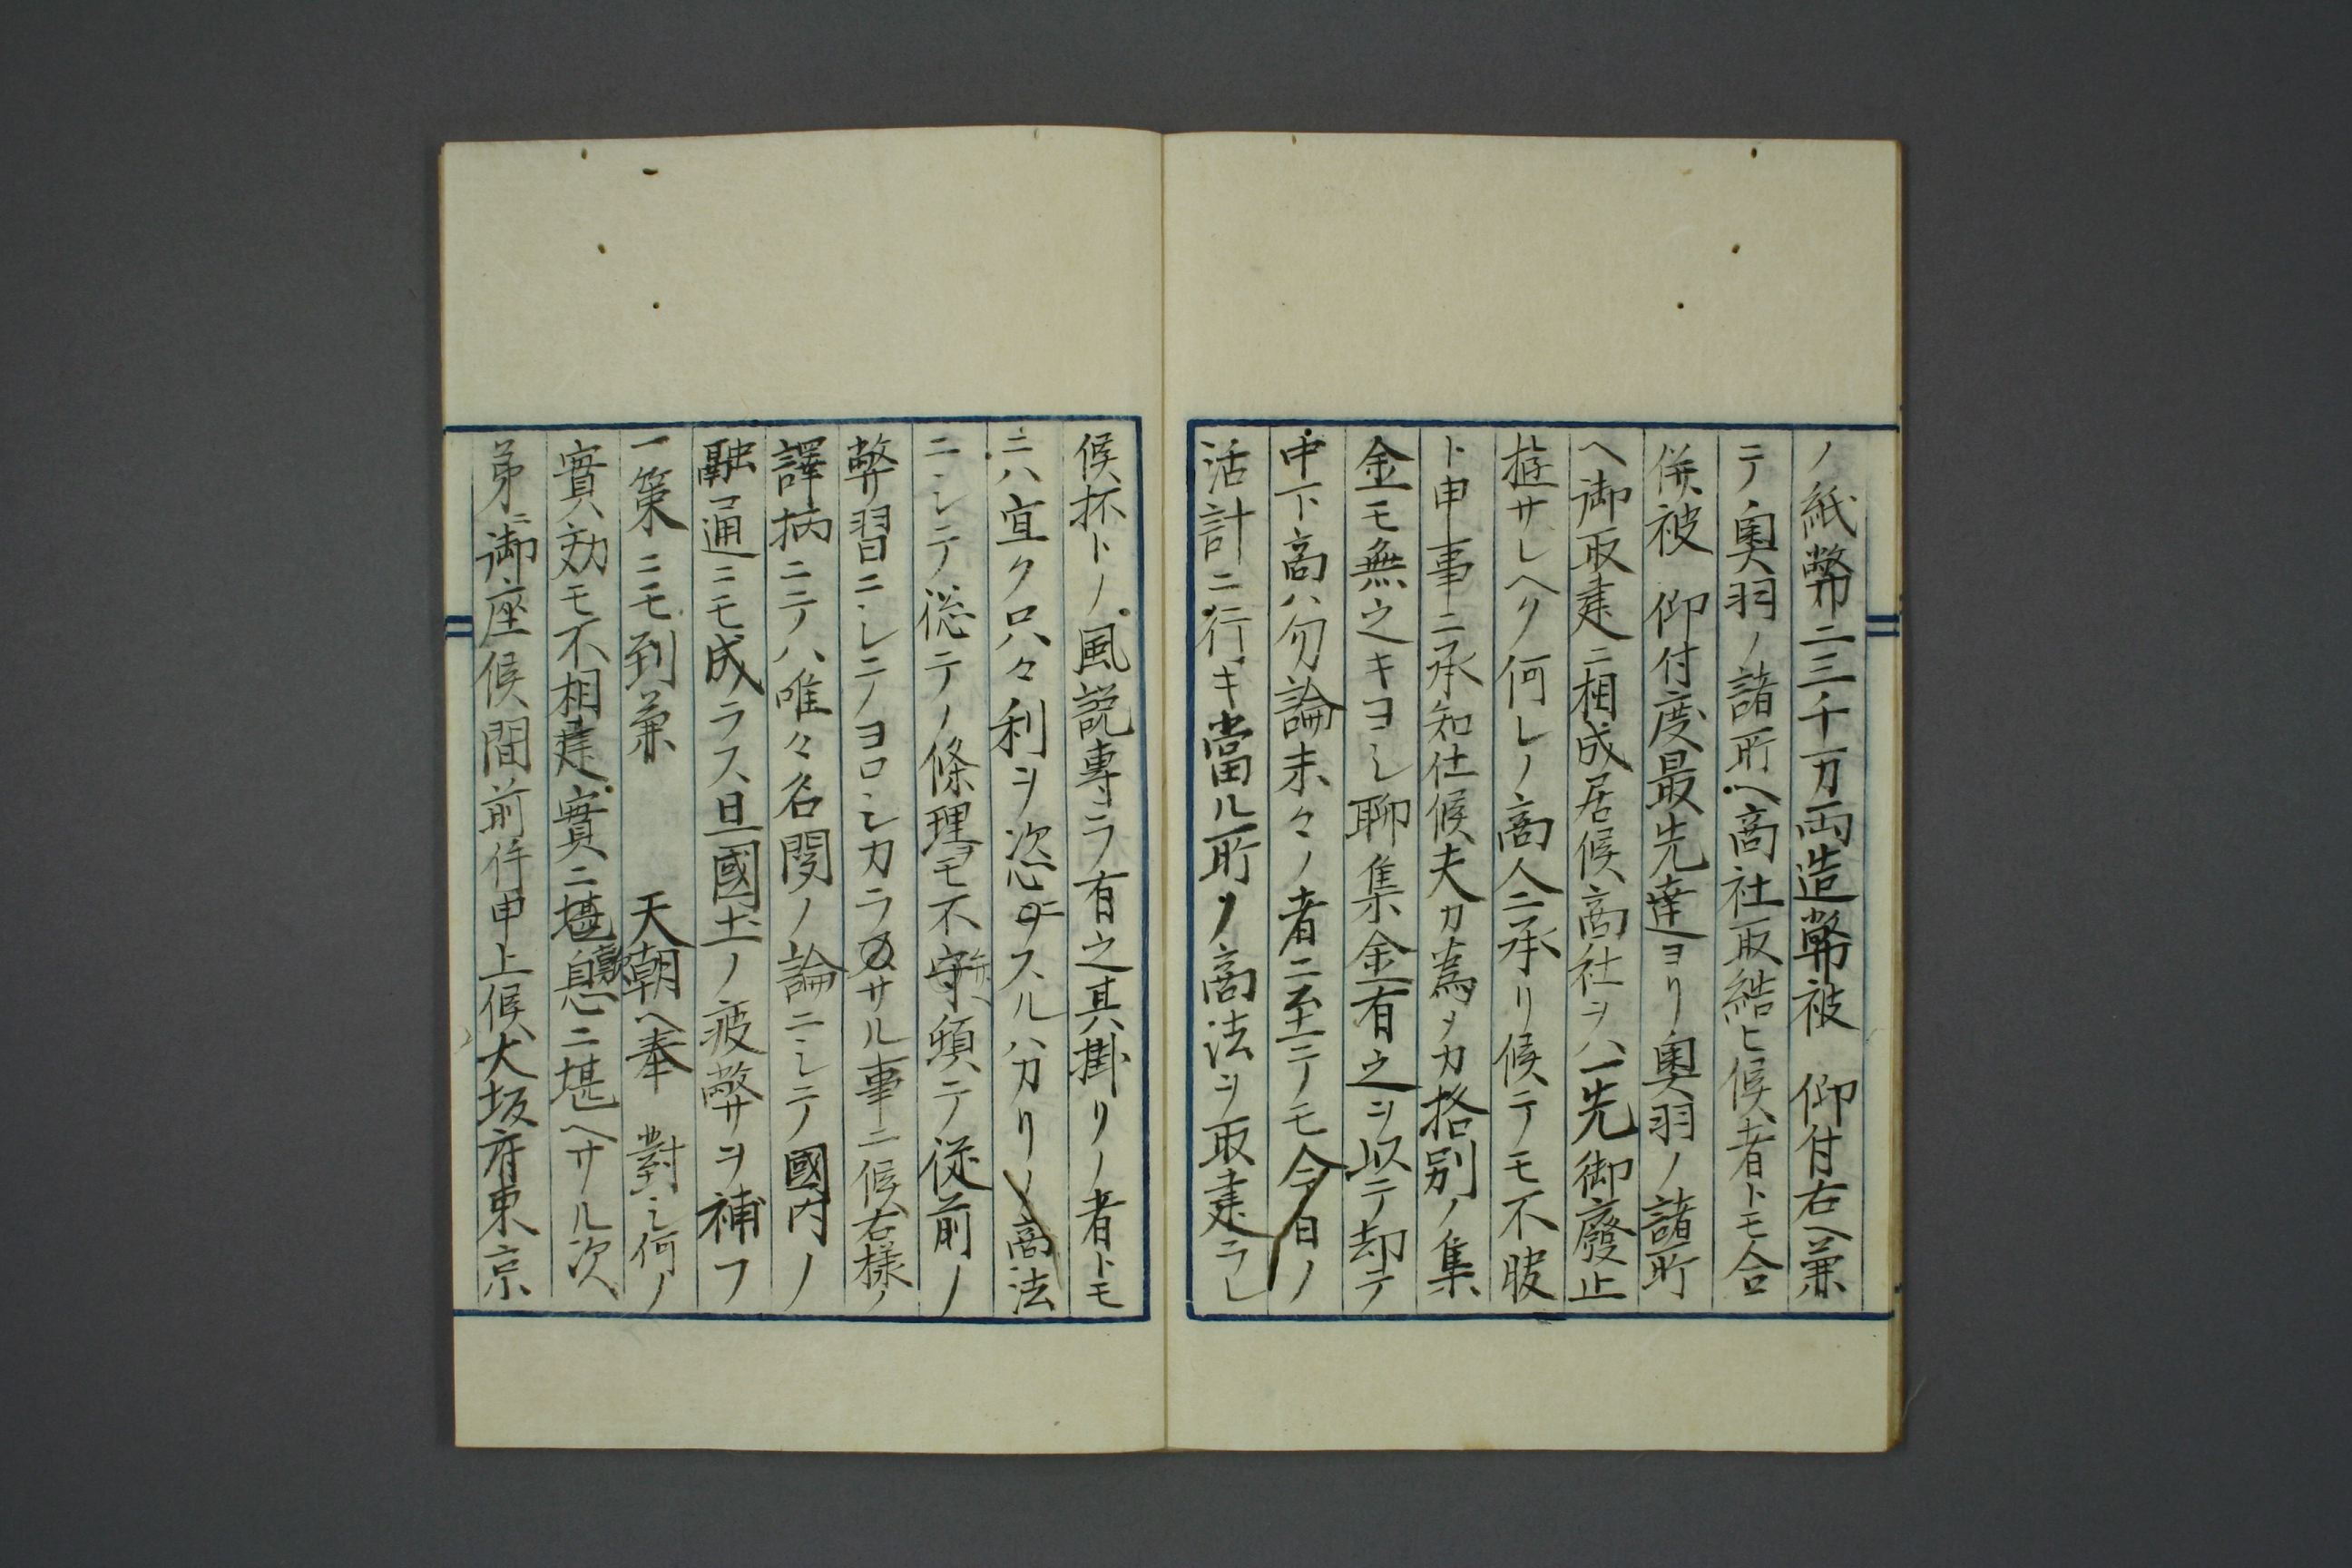 ノ紙幣二三千万両造幣被　仰付右ヘ兼
テノ奥羽ノ諸所ヘ商社取結ヒ候者トモ合
併被　仰付度最先達ヨリ奥羽ノ諸所
ヘ御取建ニ相成居候商社ヲハ一先御廢止
遊サレヘク何レノ商人ニ承リ候テモ不服
ト申事ニ承知仕候夫カ為メカ格別ノ集
金モ無之キヨシ聊集金有之ヲ以テ却テ
中下商ハ勿論末々ノ者ニ至テモ今日ノ
活計ニ行キ當ル所ノ商法ヲ取建ラレ
候抔トノ風説專ラ有之其掛リノ者トモ
ニハ宜ク只々利ヲ恣ニスルハカリノ商法
ニシテ従テノ條理ヲモ不守頻テ従前ノ
弊習ニシテヨロシカラサル事ニ候右様ノ
譯柄ニテハ唯々名聞ノ論ニシテ國内ノ
融通ニモ成ラス且國土ノ疲弊サヲ補フ
一策ニモ到兼　　天朝ヘ奉　對シ何ノ
實効モ不相建實ニ歎息ニ堪ヘサル次
第ニ御座候間前件申上候大坂府東京